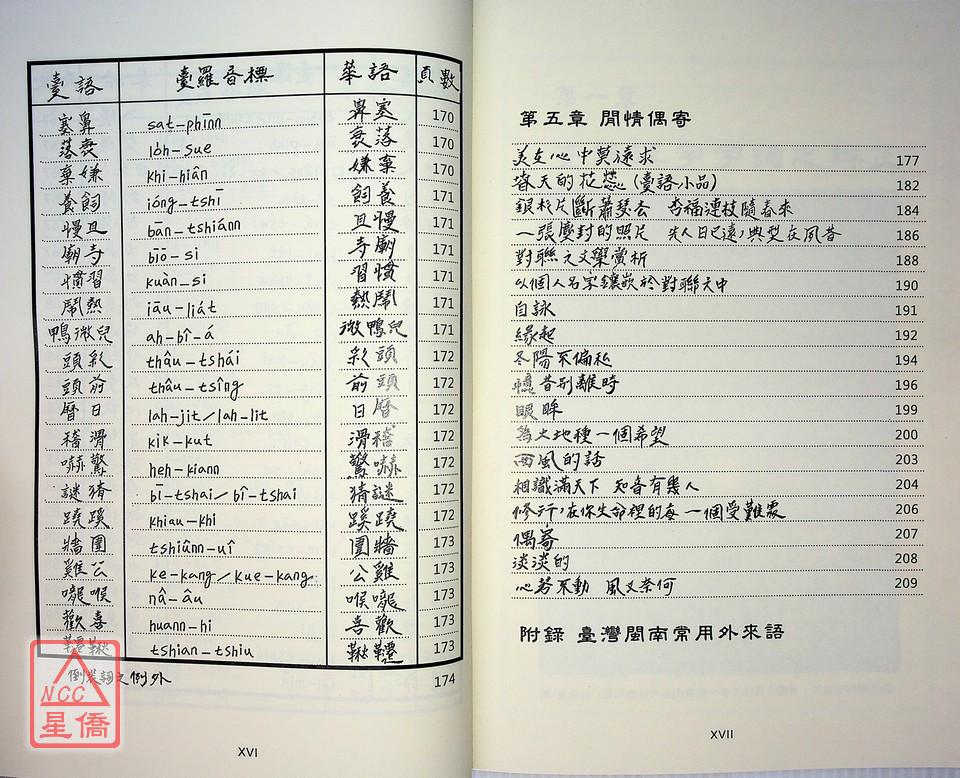 臺語 臺羅音標 華語 頁數
塞鼻 sat-phīnn 鼻塞 170
落衰 lo̍h-sue 衰落 170
棄嫌 khì-hiân 嫌棄 170
養飼 ióng-tshī 飼養 171
慢且 bān-tshiánn 且慢 171
廟寺 biō-si 寺廟 171
慣習 kuàn-si 習慣 171
鬧熱 iāu-lia̍t 熱鬧 171
鴨微兒 ah-bî-á 微鴨兒 171
頭彩 thâu-tshái 彩頭 172
頭前 thâu-tsîng 前頭 172
曆日 lah-jit/lah-lit 日曆 172
稽滑 kik-kut 滑稽 172
嚇驚 heh-kiann 驚嚇 172
謎猜 bī-tshai/bî-tshai 猜謎 172
蹺蹊 khiau-khi 蹊蹺 172
牆圍 tshiûnn-uî 圍牆 173
雞公 ke-kang/kue-kang 公雞 173
嚨喉 nâ-âu 喉嚨 173
歡喜 huann-hi 喜歡 173
韆鞦 tshian-tshiu 鞦韆 173
倒裝詞之例外 174
NCC
星僑
XVI
第五章 閒情偶寄
美在心中莫遠求 177
春天的花蕊(臺語小品) 182
銀杉片斷蕭瑟去 杏福連枝隨春來 184
一張塵封的照片 夫人日已遠,典型在夙昔 186
對聯之文學賞析 188
以個人名字鑲嵌於對聯之中 190
自詠 191
緣起 192
冬陽不偏私 194
憶昔別離時 196
眼眸 199
為土地種一個希望 200
西風的話 203
相識滿天下 知音有幾人 204
修行,在你生命裡的每一個受難處 206
偶寄 207
淡淡的 208
心若不動 風又奈何 209
附錄 臺灣閩南常用外來語
XVII